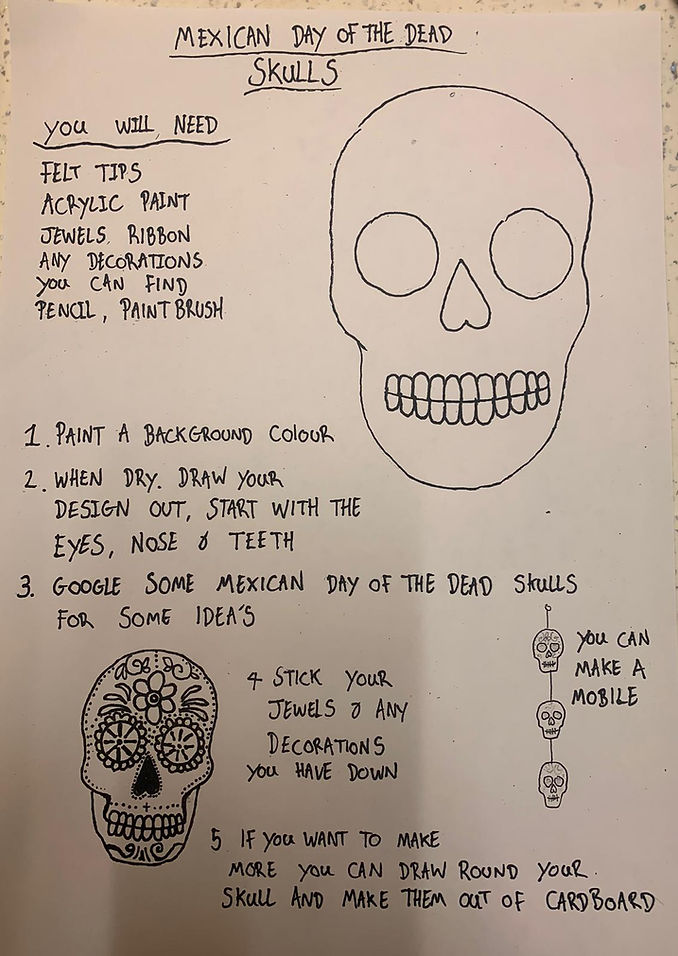 MEXICAN DAY OF THE DEAD
SKULLS
YOU WILL NEED
FELT TIPS
ACRYLIC PAINT
JEWELS, RIBBON
ANY DECORATIONS
YOU CAN FIND
PENCIL, PAINT BRUSH
1. PAINT A BACKGROUND COLOUR
2. WHEN DRY. DRAW YOUR
DESIGN OUT, START WITH THE
EYES, NOSE & TEETH
3. GOOGLE SOME MEXICAN DAY OF THE DEAD SKULLS
FOR SOME IDEA'S
4 STICK YOUR
JEWELS & ANY
DECORATIONS
YOU HAVE DOWN
YOU CAN
MAKE A
MOBILE
5 IF YOU WANT TO MAKE
MORE YOU CAN DRAW ROUND YOUR
SKULL AND MAKE THEM OUT OF CARDBOARD